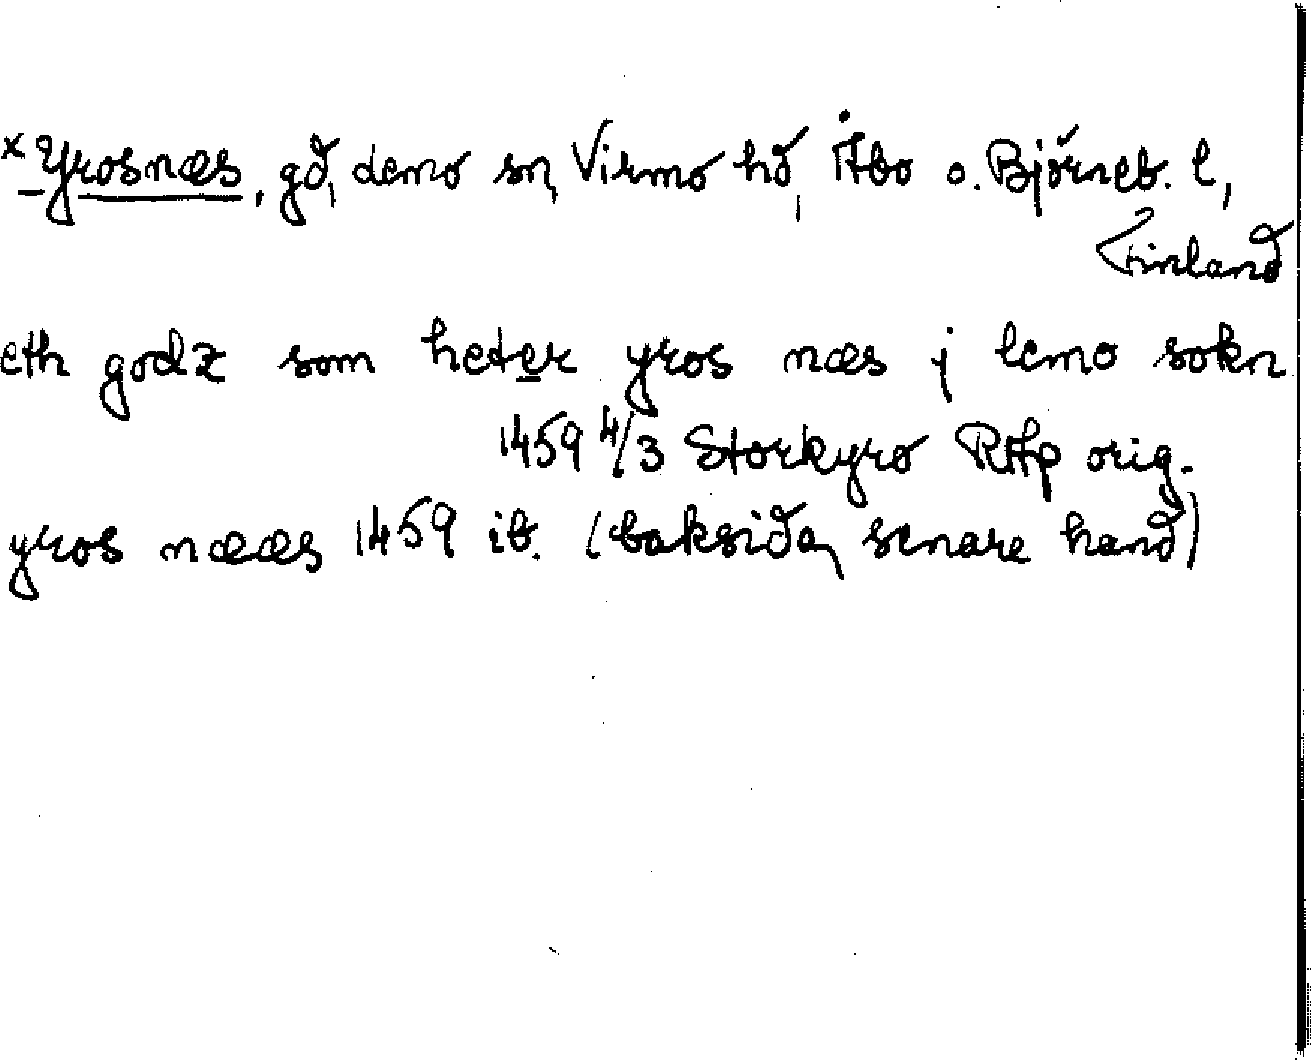 ×Yrosnæs, gd, Lemo sn, Virmo hd, Åbo o. Björneb. l,
Finland
eth godz som heter yros næs j lemo sokn
1459 4/3 Storkyro RAp orig.
yros nææs 1459 ib. (baksida, senare hand)